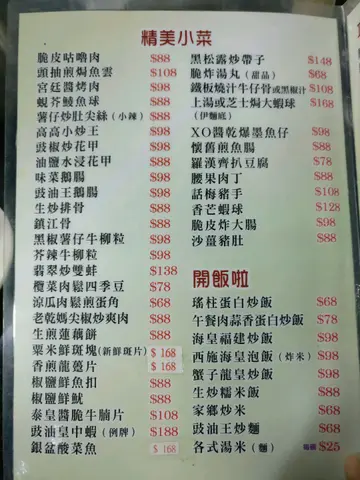 精美小菜
脆皮咕嚕肉 $88
頭抽煎焗魚雲 $108
宮廷醬烤肉 $98
蝦芥鱔魚球 $88
薯仔炒肚尖絲 (小辣) $88
高高小炒王 $98
豉椒炒花甲 $98
油鹽水浸花甲 $88
味菜鵝腸 $98
豉油王鵝腸 $98
生炒排骨 $88
鎮江骨 $88
黑椒薯仔牛柳粒 $98
芥辣牛柳粒 $98
翡翠炒雙蚌 $138
欖菜肉鬆四季豆 $78
涼瓜肉鬆煎蛋角 $68
老乾媽尖椒炒爽肉 $88
生煎蓮藕餅 $88
粟米鮮斑塊 (新鮮斑片) $168
香煎龍躉片 $168
椒鹽鮮魚扣 $88
椒鹽鮮魷 $88
泰皇醬脆牛腩片 $108
豉油皇中蝦 (例牌) $188
銀盆酸菜魚 $168
黑松露炒帶子 $148
脆炸湯丸 (甜品) $68
鐵板燒汁牛仔骨或黑椒汁 $108
上湯或芝士焗大蝦球 $168
(伊麵底)
XO醬乾爆墨魚仔 $98
懷舊煎魚腸 $88
羅漢齊扒豆腐 $78
腰果肉丁 $88
話梅豬手 $108
香芒蝦球 $128
脆皮炸大腸 $98
沙薑豬肚 $88
開飯啦
瑤柱蛋白炒飯 $68
午餐肉蒜香蛋白炒飯 $78
海皇福建炒飯 $98
西施海皇泡飯 (炸米) $98
蟹子龍皇炒飯 $98
生炒糯米飯 $88
家鄉炒米 $68
豉油王炒麵 $68
各式湯米 (麵) $25